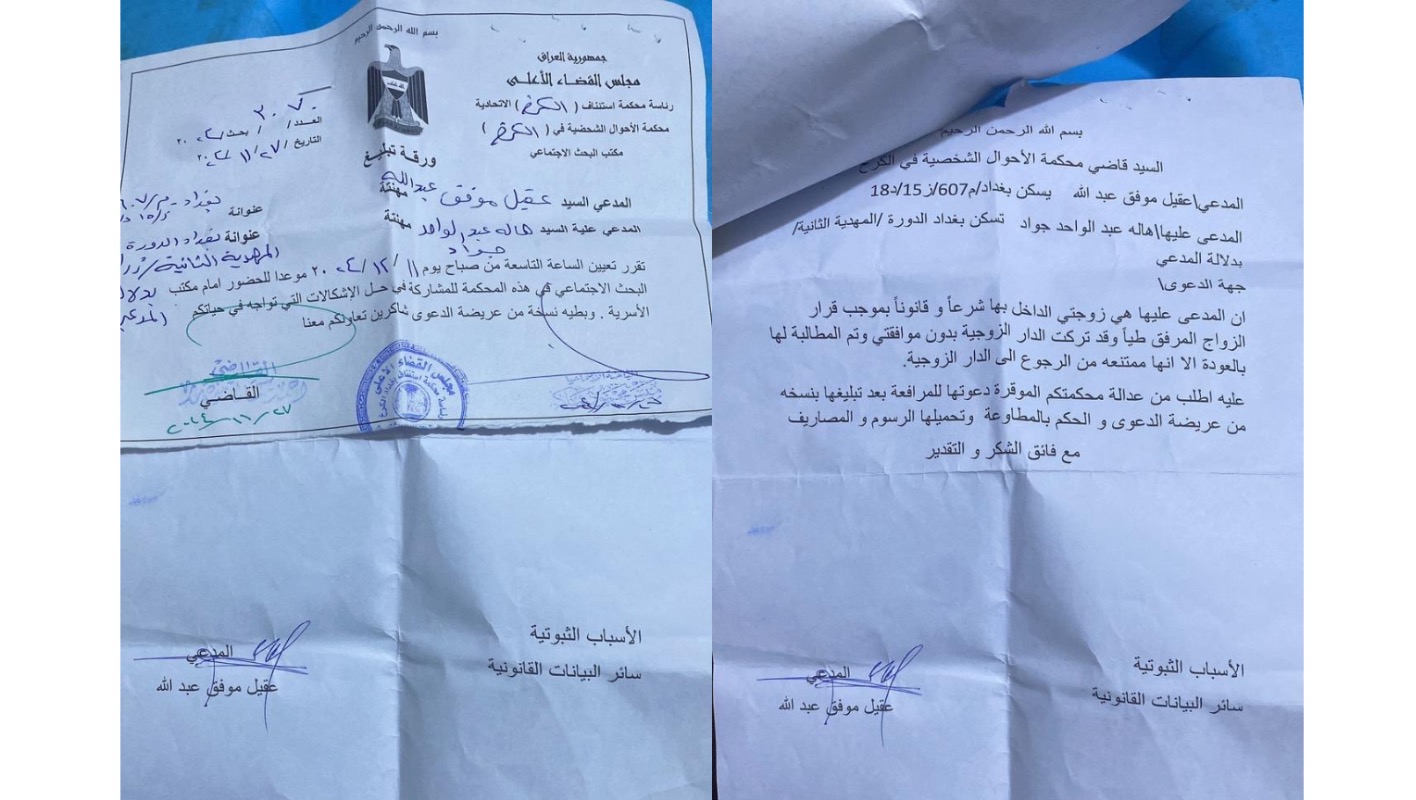 بسم الله الرحمن الرحيم
جمهورية العراق
مجلس القضاء الأعلى
رئاسة محكمة استئناف ( الكرخ ) الاتحادية
محكمة الأحوال الشخصية في ( الكرخ )
مكتب البحث الاجتماعي
العدد / / بحث / ٢٠٢٤
التاريخ ٢٧ / ١١ / ٢٠٢٤
ورقة تبليغ
المدعي السيد عقيل موفق عبدالله مهنتة عنوانة بغداد
المدعي علية السيد هاله عبد الواحد جواد مهنتة عنوانة بغداد الدورة المهدية الثانية
تقرر تعيين الساعة التاسعة من صباح يوم ١١ / ١٢ / ٢٠٢٤ موعدا للحضور امام مكتب
البحث الاجتماعي في هذه المحكمة للمشاركة في حل الإشكالات التي تواجه في حياتكم
الأسرية . وبطيه نسخة من عريضة الدعوى شاكرين تعاونكم معنا
القاضي
٢٠٢٤/١١/٢٧
مجلس القضاء الأعلى
الأسباب الثبوتية
سائر البيانات القانونية
المدعي
عقيل موفق عبد الله
بسم الله الرحمن الرحيم
السيد قاضي محكمة الأحوال الشخصية في الكرخ
المدعي\عقيل موفق عبد الله يسكن بغداد/م607/ز15/د18
المدعى عليها\هاله عبد الواحد جواد تسكن بغداد الدورة /المهدية الثانية/
بدلالة المدعي
جهة الدعوى\
ان المدعى عليها هي زوجتي الداخل بها شرعاً و قانوناً بموجب قرار
الزواج المرفق طياً وقد تركت الدار الزوجية بدون موافقتي وتم المطالبة لها
بالعودة الا انها ممتنعه من الرجوع الى الدار الزوجية.
عليه اطلب من عدالة محكمتكم الموقرة دعوتها للمرافعة بعد تبليغها بنسخه
من عريضة الدعوى و الحكم بالمطاوعة وتحميلها الرسوم و المصاريف
مع فائق الشكر و التقدير
الأسباب الثبوتية
سائر البيانات القانونية
المدعي
عقيل موفق عبد الله